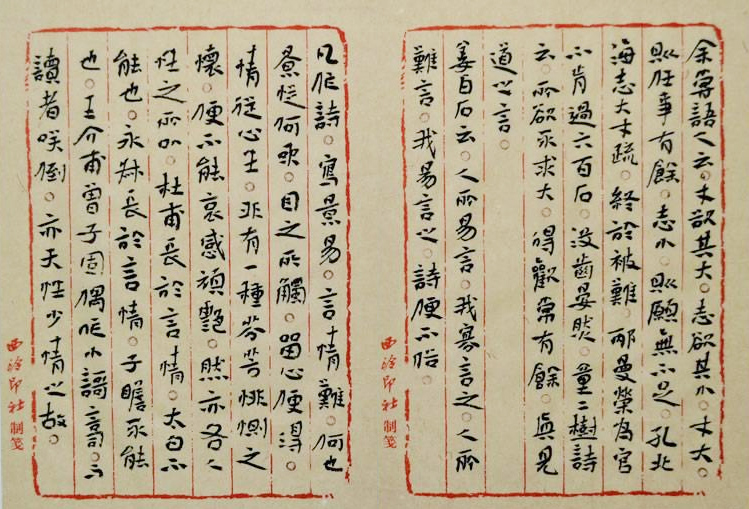 余嘗語人云。才欲其大。志欲其小。才大。
則任事有餘。志小。則願無不足。孔北
海志大才疏。終於被難。邴曼榮為官
不肯過六百石。沒齒晏然。童二樹詩
云。所欲不求大。得歡常有餘。真見
道之言。
姜白石云。人所易言。我寡言之。人所
難言。我易言之。詩便不俗。
西泠印社制笺
凡作詩。寫景易。言情難。何也
景從何來。目之所觸。留心便得。
情從心生。非有一種芬芳悱惻之
懷。便不能哀感頑艷。然亦各人
性之所。杜甫長於言情。太白不
能也。永叔長於言情。子瞻不能
也。王介甫曾子固偶作小
讀者笑倒。亦天性少情之故。
西泠印社制笺